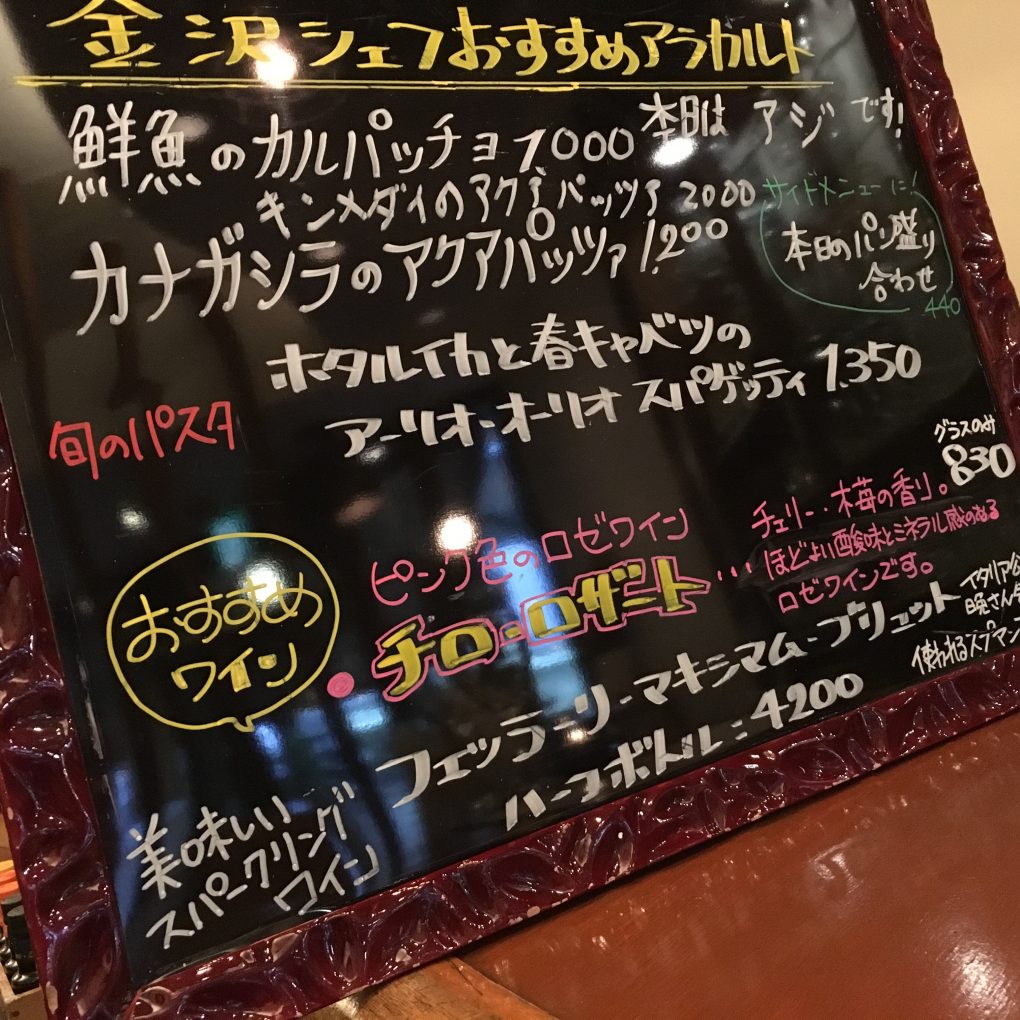 金沢シェフおすすめアラカルト
鮮魚のカルパッチョ 1,000 本日は アジ です!
キンメダイのアクアパッツァ 2000
カナガシラのアクアパッツァ 1,200
サイドメニューに!
本日のパン盛り
合わせ
440
旬のパスタ
ホタルイカと春キャベツの
アーリオ・オーリオ スパゲッティ 1,350
グラスのみ
830
おすすめ
ワイン
ピンク色のロゼワイン
チロ・ロザート…
チェリー・木苺の香り。
ほどよい酸味とミネラル感のある
ロゼワインです。
美味しい
スパークリング
ワイン
フェッラーリ・マキシマム・ブリュット
ハーフボトル:4200
イタリア公
晩さん会
使われるスプマン